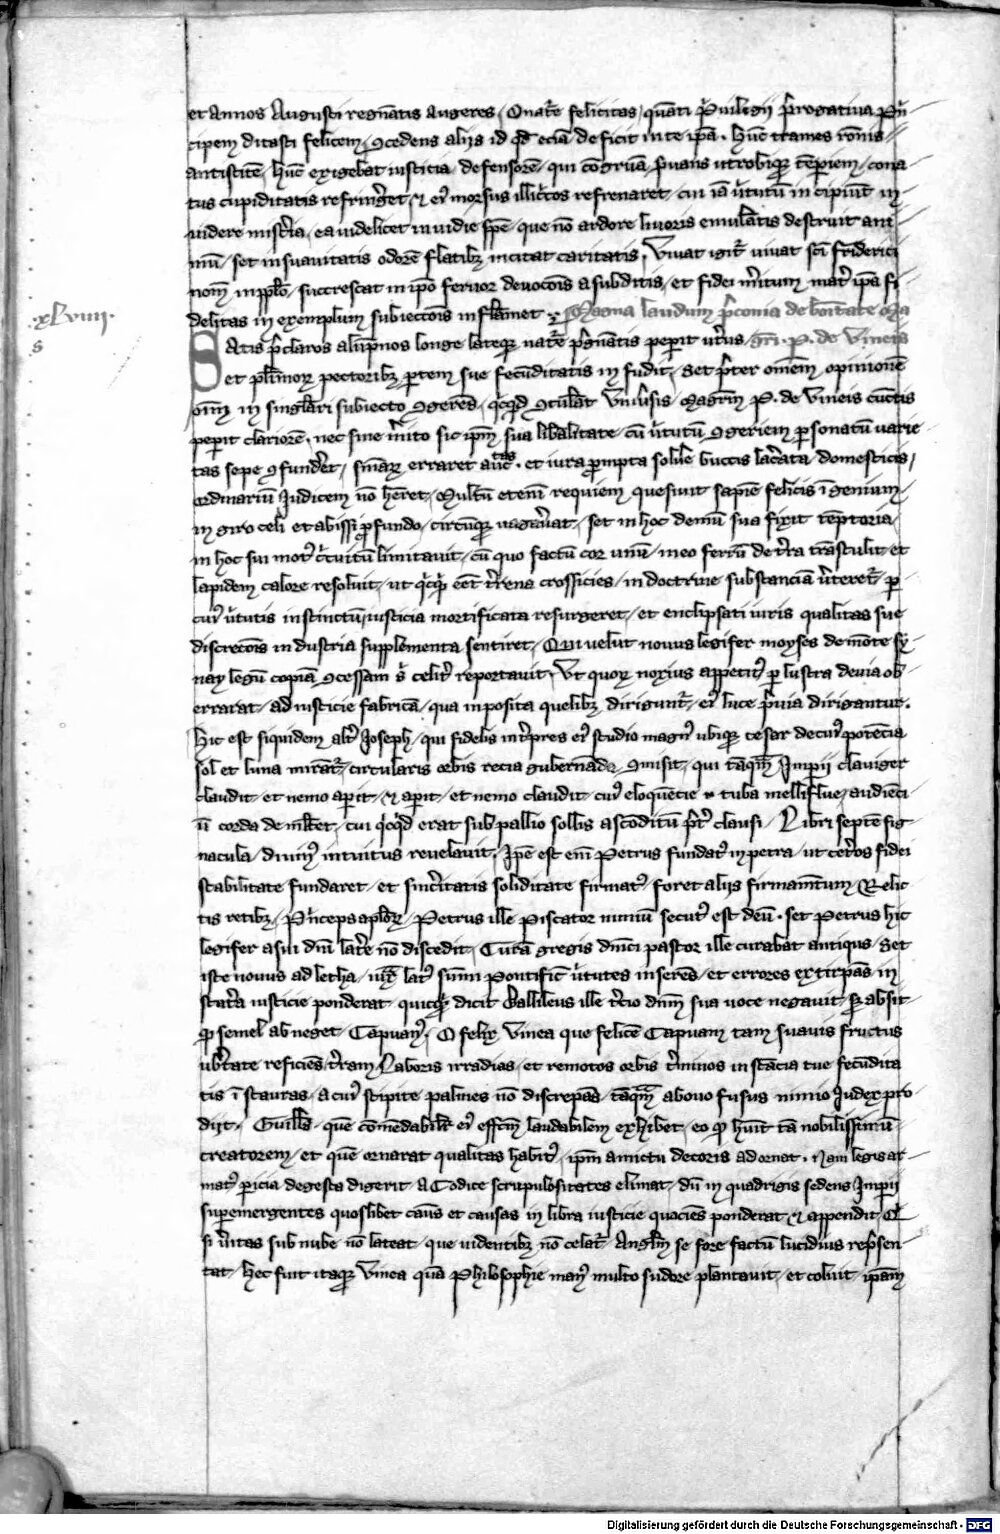 et annos Augusti regnātis augeres / Quāt̄e felicitas / quāti p̄uilegij p̄rogatiua pn̄
cipem ditasti felicem / ꝯcedens alijs id qd̄ eciā deficit in te ip̄a . Hūc trames rōnis
antistitē / hūc exigebat iusticia / defensorē / qui cōgruā p̄uans utrobiqꝫ tēperiem / cona
tus cupiditatis refrinḡet / ⁊ eiꝰ morsus illicitos refrenaret / cui iā v̄tutū incipiūt in
uidere mist̄ia / ea uidelicet inuidie spē / que nō ardore liuoris emulātis destruit ani
mū / set in suauitatis odorē flatibꝫ incitat caritatis / Viuat igit̄ viuat sc̄i friderici
nom̄ in pplō / succrescat in ip̄o feruor deuocōis a subditis / et fidei m̄itum mat̄ ip̄a fi
delitas in exemplum subiectōis inflāmet / Magna laudum p̄conia de bōitate ma
.xLviij.
s
Satis p̄claros alūpnos longe lateqꝫ nat̄e p̄gnātis peperit vt̄us / gri . P . de Vineis
et pl̄imoꝝ pectoribꝫ p̄tem sue fecūditatis in fudit / Set p̄ter om̄em opinionē
om̄ in singlāri subiecto ꝯgerēs / qcqd ꝯtul̄at vniūsis / Magrm̄ P . de Vineis cūctis
peperit clariorē / nec sine m̄ito sic ip̄m sua libalitate / cū v̄tutū ꝯgeriem psonatū uarie
tas sepe ꝯfundēt / erraret auctās . et iura prompta soluē buccis lac̄ata / domesticis /
Ordinariū Judicem nō hēret / Multū etenī requiem / quesiuit sapiē felicis īgenium
in giro celi et abissi p̄fundo / circūqꝫ uagauat / set in hoc demū sua fixit tēptoria /
in hoc sui motꝰ c̄cuitū limitauit / cū quo factū cor unū / meo fertū de t̄ra trāstulit / et
lapidem calore resoluit / ut qcqd eēt t̄rena crossicies / in doctrine substanciā v̄teret̄ / p
cuiꝰ v̄tutis instinctū iusticia mortificata resurgeret / et enclipsati iuris qualitas sue
discrecōis industria supplementa sentiret / Qui velut nouus legifer moyses de mōte sy
nay legū copiā ꝯcessam s̄ celit̄ reportauit / Vt quoꝝ noxius appetitꝰ p lustra deuia ob
errarat / ad iusticie fabricā / qua in posita quelibꝫ dirigunt̄ / eiꝰ luce p̄uia dirigantur .
Hic est siquidem alt̄ Joseph / qui fidelis int̄pres eiꝰ studio magnꝰ ubiqꝫ cesar de cuiꝰ potēcia
sol et luna mirāt̄ / circularis orbis recia gubernāda ꝯmisit / qui tāqm̄ Imperij clauiger
claudit et nemo aperit / ⁊ aperit / et nemo claudit / cuiꝰ eloquencie tuba melliflue / audienci
ū corda demlcet / cui qcqd erat sub pallio sollis ascōditū p̄t̄ clausi / Libri septē sig
nacula / diuinꝰ intuitus reuelauit / Ip̄e est enī Petrus fundatꝰ in petra / ut cet̄os fidei
stabilitate fundaret / et sinc̄itatis soliditate firmatꝰ foret alijs firmamētum / Relic
tis retibꝫ / P̄nceps aplōꝝ / Petrus ille Piscator nimiū secutꝰ est deū . set Petrus hic
legifer a sui dnī lat̄e nō discedit / Curā gregis dnīci pastor ille curabat antiqus / Set
iste nouus adletha / iux̄ latꝰ sum̄i Pontificꝭ v̄tutes inserēs / et errores extirpās in
stat̄a iusticie ponderat quicqd dicit Gallileus ille t̄cio dnm̄ sua uoce negauit / s absit
qd semel abneget Capuanꝰ / O felix Vinea que felicē Capuam tam suauis fructus
ub̄tate reficiēs / t̄ram Laboris irradias / et remotos orbis t̄minos instācia tue fecūdita
tis īstauras / a cuiꝰ stipite palmes nō discrepās / tāqm̄ ab ouo fusus nimio Judex pro
dijt / Guills̄ . quē cōmēdabilē eiꝰ effcm̄ laudabilem exhibet / eo qd huit tā nobilissimū
creatorem / et quē ornarat qualitas habitꝰ / ip̄m amictu decoris adornat . Nam legis ar
matꝰ picia degesta digerit / a Codice scrupulositates elimat / dū in quadrigis sedens Imperij
supemergentes quoslibet causꝰ et causas in libra iusticie quociēs ponderat ⁊ appendit /
si v̄itas sub nube nō lateat / que uidentibꝫ nō celat̄ / Anglm̄ se fore factū lucidius rep̄sen
tat / hec fuit itaqꝫ Vinea quā Philosophie manꝰ multo sudore plantauit / et coluit / ipam̄
Digitalisierung gefördert durch die Deutsche Forschungsgemeinschaft - DFG